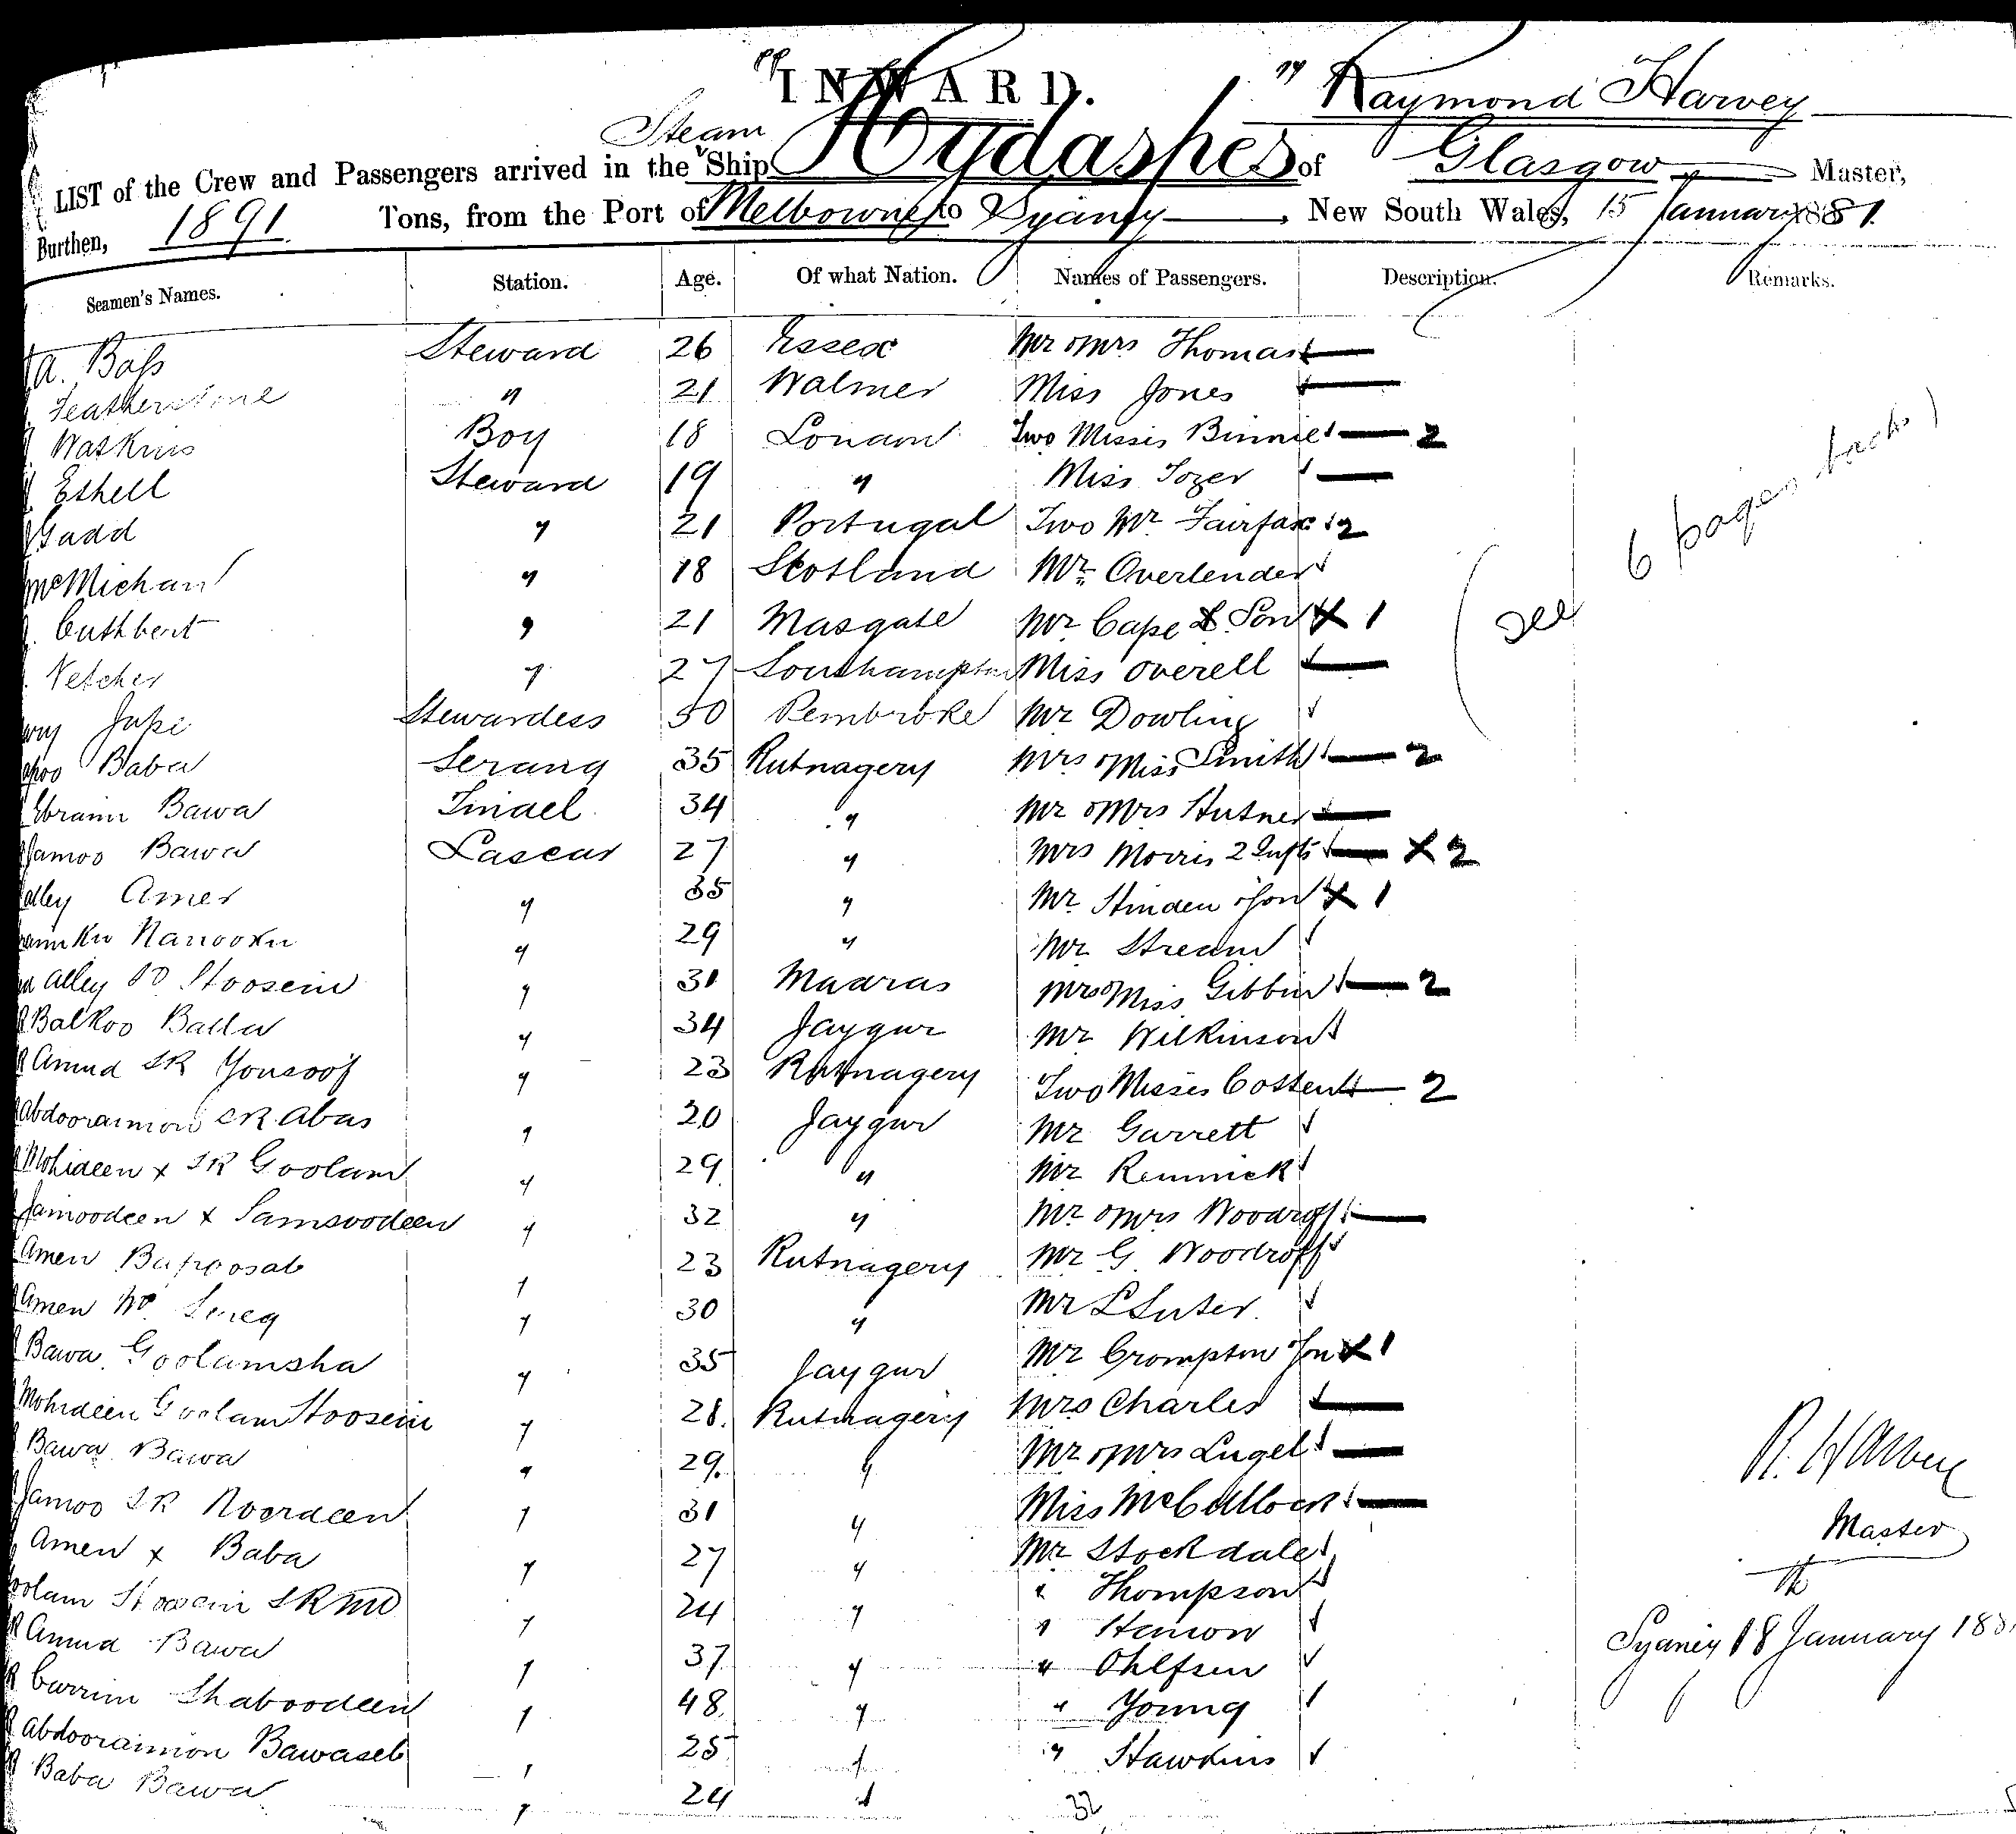 INWARD.
Raymond Harvey
Steam
LIST of the Crew and Passengers arrived in the Ship Hydaspes of Glasgow Master,
Burthen, 1891 Tons, from the Port of Melbourne to Sydney, New South Wales, 15 January 1881.
Seamen's Names. Station. Age. Of what Nation. Names of Passengers. Description. Remarks.
A. Bass Steward 26 Essex Mr & Mrs Thomas
Featherstone " 21 Walmer Miss Jones
Watkins Boy 18 London Two Misses Binnie 2
Eshell Steward 19 " Miss Tozer
Gadd " 21 Portugal Two Mr Fairfax 2
McMichan " 18 Scotland Mr Overlender
Cuthbert " 21 Margate Mr Cape & Son X 1
Netcher " 27 Southampton Miss Overell
Jupe Stewardess 50 Pembroke Mr Dowling
Baba Serang 35 Rutnagery Mrs & Miss Smith 2
Ebraim Bawa Tindel 34 " Mr & Mrs
Jamoo Bawa Lascar 27 " Mrs Morris 2 Infts X 2
Alley Amer " 35 " Mr Hinden & Son X 1
Nanooku " 29 " Mr Stream
Alley Hoosein " 31 Madras Mrs & Miss Gibbin 2
Balkoo Balla " 34 Jaygur Mr Wilkinson
Amud SK Yousoof " 23 Rutnagery Two Misses 2
Abdooraimon SK Abas " 20 Jaygur Mr Garrett
Mohideen x SK Goolam " 29 " Mr Rennick
Jamoodeen x Samsoodeen " 32 " Mr & Mrs Woodroff
Amen Bapoosab " 23 Rutnagery Mr G Woodroff
Amen " 30 " Mr Luter
Bawa Goolamsha " 35 Jaygur Mr Crompton Son X 1
Mohideen Goolam Hoosein " 28 Rutnagery Mrs Charles
Bawa Bawa " 29 " Mr & Mrs Lugel
Jamoo SK Noordeen " 31 " Miss McCullock
Amen x Baba " 27 " Mr Stockdale
Goolam Hoosein SK Md " 24 " " Thompson
Amud Bawa " 37 " " Hanon
Currim Shaboodeen " 48 " " Ohlfsen
Abdooraimon Bawaseb " 25 " " Young
Baba Bawa " 24 " " Hawkins
32
(see 6 pages back)
R. Harvey
Master
Sydney 18 January 188